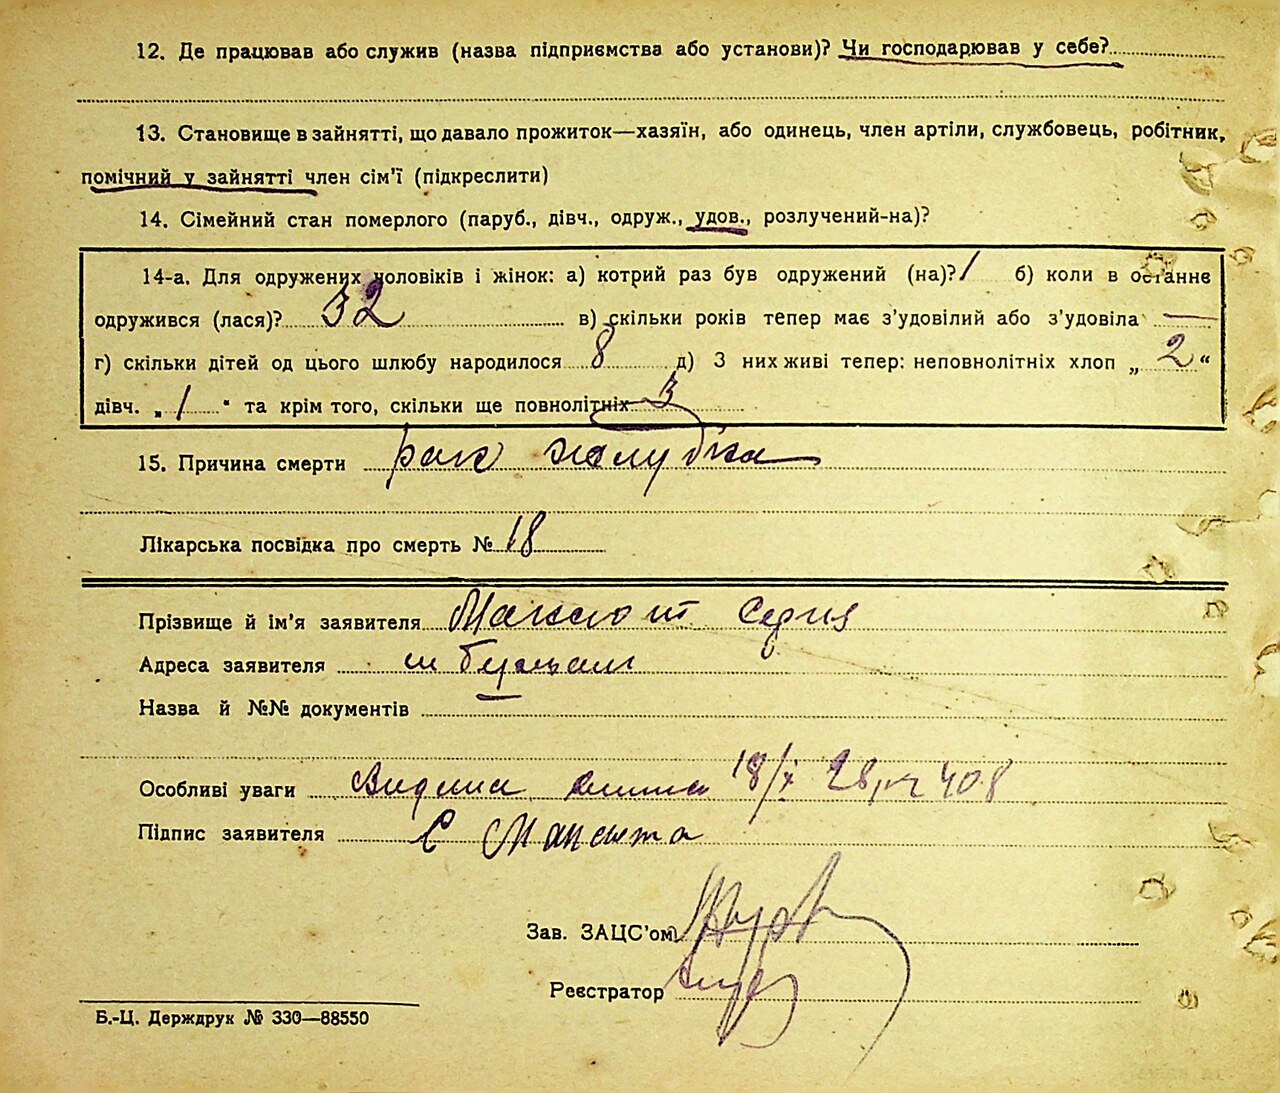 12. Де працював або служив (назва підприємства або установи)? Чи господарював у себе?
13. Становище в зайнятті, що давало прожиток—хазяїн, або одинець, член артіли, службовець, робітник,
помічний у зайнятті член сім'ї (підкреслити)
14. Сімейний стан померлого (паруб., дівч., одруж., удов., розлучений-на)?
14-а. Для одружених чоловіків і жінок: а) котрий раз був одружений (на)? 1 б) коли в останнє
одружився (лася)? 32 в) скільки років тепер має з'удовілий або з'удовіла —
г) скільки дітей од цього шлюбу народилося 8 д) З них живі тепер: неповнолітніх хлоп „ 2 “
дівч. „ 1 “ та крім того, скільки ще повнолітніх 3
15. Причина смерти рак
Лікарська посвідка про смерть № 18
Прізвище й ім'я заявителя
Адреса заявителя
Назва й №№ документів
Особливі уваги Видана 18/X 28 408
Підпис заявителя С
Зав. ЗАЦС'ом
Реєстратор
Б.-Ц. Держдрук № 330—88550